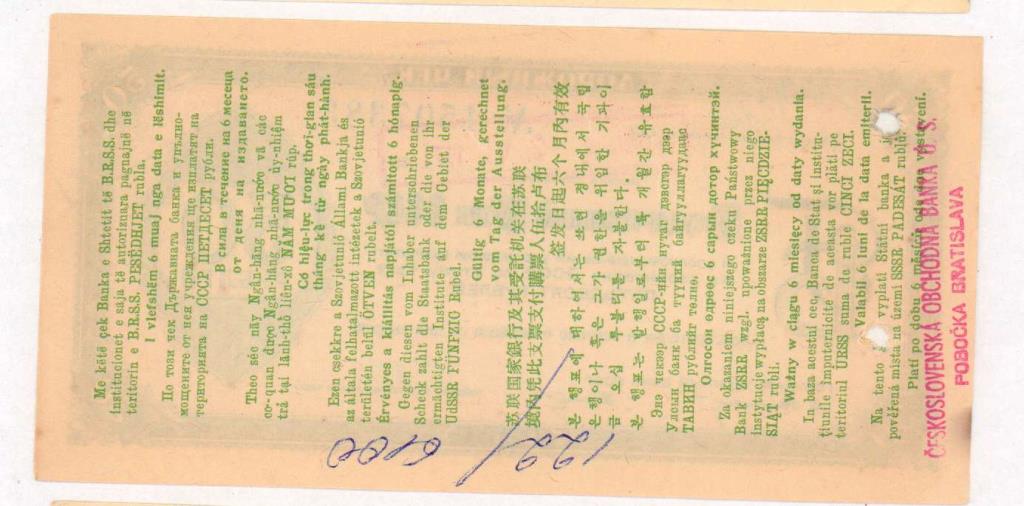 Me këtë çek Banka e Shtetit të B.R.S.S. dhe
institucionet e saja të autorizuara pagnajnë në
teritorin e B.R.S.S. PESËDHJET rubla.
I vlefshëm 6 muaj nga data e lëshimit.
По този чек Държавната банка и упълно-
мощените от нея учреждения ще изплатят на
територията на СССР ПЕТДЕСЕТ рубли.
В сила в течение на 6 месеца
от деня на издаването.
Theo séc này Ngân-hàng nhà-nước và các
cơ-quan được Ngân-hàng nhà-nước ủy-nhiệm
trả tại lãnh-thổ liên-xô NĂM MƯƠI rúp.
Có hiệu-lực trong thời-gian sáu
tháng kể từ ngày phát-hành.
Ezen csekkre a Szovjetunió Állami Bankja és
az általa felhatalmazott intézetek a Szovjetunió
területén belül ÖTVEN rubelt.
Érvényes a kiállítás napjától számított 6 hónapig.
Gegen diesen vom Inhaber unterschriebenen
Scheck zahlt die Staatsbank oder die von ihr
ermächtigten Institute auf dem Gebiet der
UdSSR FÜNFZIG Rubel.
Gültig 6 Monate, gerechnet
vom Tag der Ausstellung.
苏联国家銀行及其受託机关在苏联
境內凭此支票支付購票人伍拾卢布
签发日起六个月內有效
본 행표에 대하여서는 쏘련 경내에서 국립
은행이나 혹은 그가 권한을 위임한 기관이
금 오십 루블리를 지불한다.
본 행표는 발행일로부터 륙개월간 유효함
Энэ чекээр СССР-ийн нутаг дэвсгэр дээр
Улсын банк ба түүний байгууллагуудаас
ТАВИН рублийг төлнө.
Олгосон өдрөөс 6 сарын дотор хүчинтэй.
Za okazaniem niniejszego czeku Państwowy
Bank ZSRR wzgl. upoważnione przez niego
instytucje wypłacą na obszarze ZSRR PIĘĆDZIE-
SIĄT rubli.
Ważny w ciągu 6 miesięcy od daty wydania.
In baza acestui cec, Banca de Stat și institu-
țiunile imputernicite de aceasta vor plăti pe
teritoriul URSS suma de ruble CINCI ZECI.
Valabil 6 luni de la data emiterii.
Na tento vyplatí Státní banka a
pověřená místa na území SSSR PADESÁT rublů.
Platí po dobu 6 měsíců ode dne vystavení.
ČESKOSLOVENSKÁ OBCHODNÁ BANKA Ú. S.
POBOČKA BRATISLAVA
122/ 6100